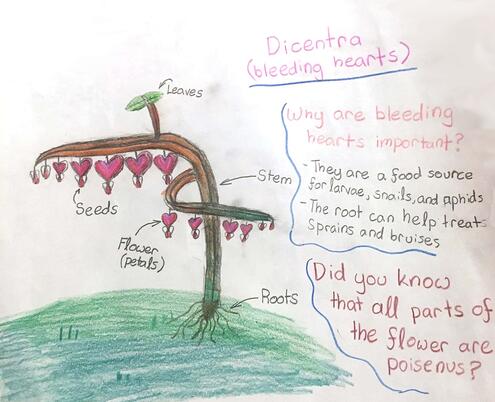 Dicentra
(bleeding hearts)
Leaves
Why are bleeding
hearts important?
- They are a food source
for larvae, snails, and aphids
- The root can help treat
Sprains and bruises
Stem
Seeds
Flower
(petals)
Roots
Did you know
that all parts of
the flower are
poisenus?